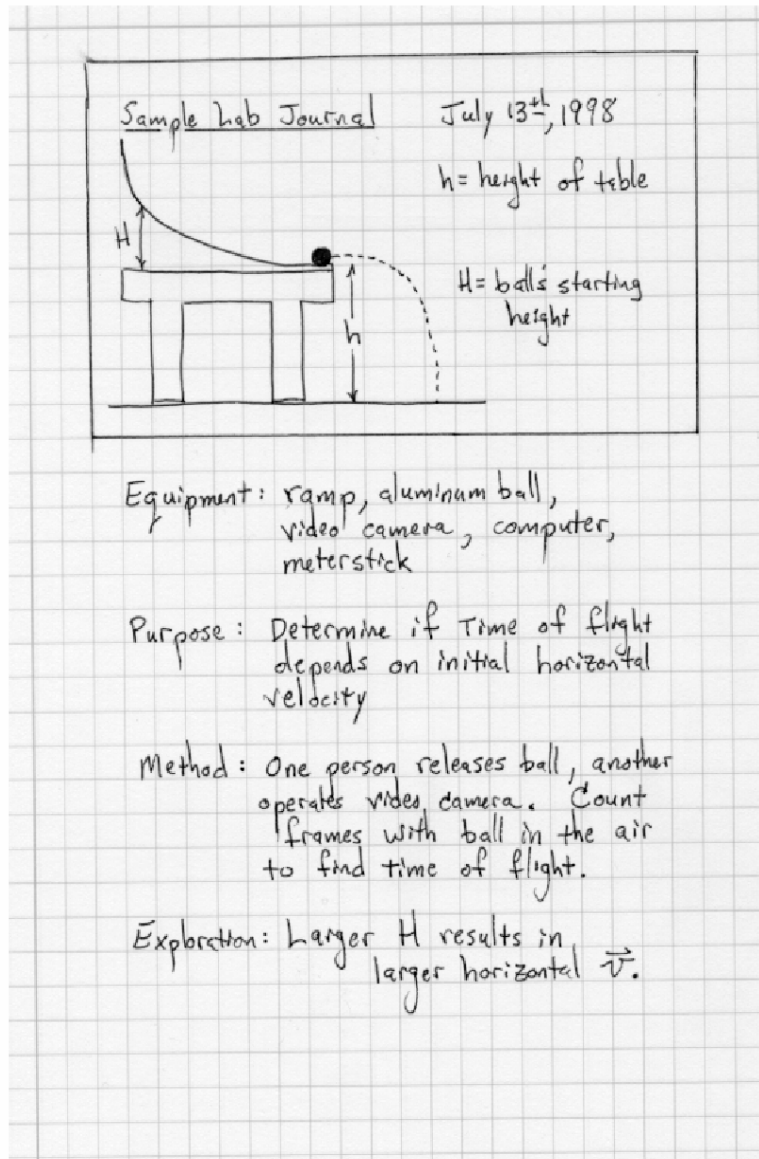 Sample Lab Journal
July 13th, 1998
h = height of table
H
H = ball's starting
height
h
Equipment: ramp, aluminum ball,
video camera, computer,
meterstick
Purpose: Determine if Time of flight
depends on initial horizontal
velocity
Method: One person releases ball, another
operates video camera. Count
frames with ball in the air
to find time of flight.
Exploration: Larger H results in
larger horizontal v⃗.